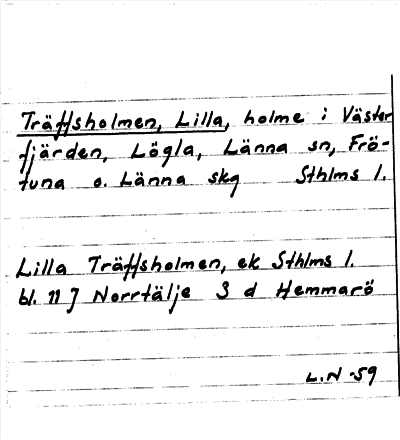 Träffsholmen, Lilla, holme i Väster
fjärden, Lögla, Länna sn, Frö-
tuna o. Länna skg Sthlms l.
Lilla Träffsholmen, ek Sthlms l.
bl. 77 J Norrtälje 3 d Hemmarö
L.N -59